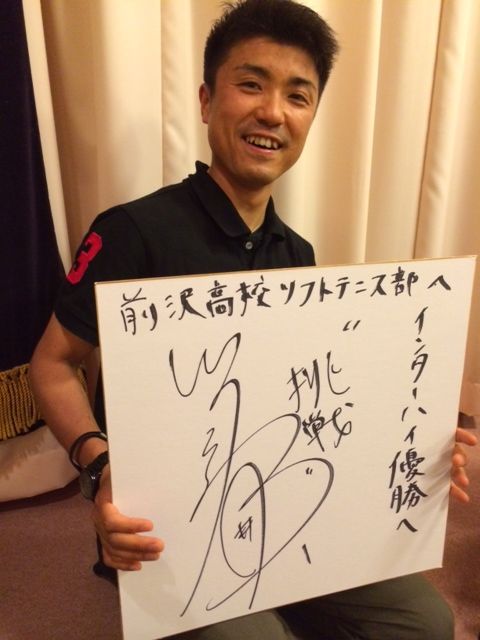 前沢高校ソフトテニス部へ
インターハイ優勝へ
"挑戦"
3